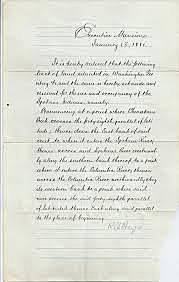 Executive Mansion
January 18, 1881.
It is hereby ordered that the following
tract of land situated in Washington Ter-
ritory be and the same is hereby set aside and
reserved for the use and occupancy of the
Spokane Indians, namely:
Commencing at a point where Chemakane
Creek crosses the forty-eighth parallel of lati-
tude; thence down the east bank of said
creek to where it enters the Spokane River;
thence across said Spokane River westwardly
along the southern bank thereof to a point
where it enters the Columbia River; thence
across the Columbia River northwardly along
its western bank to a point where said
river crosses the said forty-eighth parallel
of latitude; thence east along said parallel
to the place of beginning.
R B Hayes